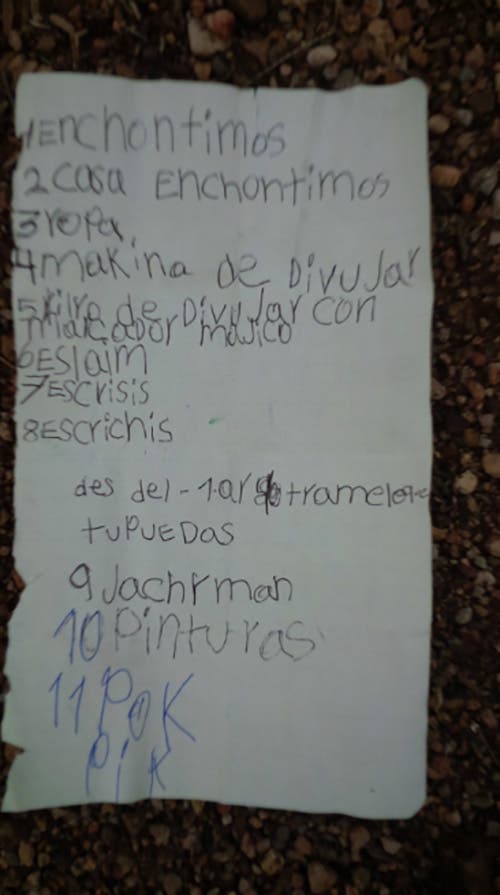 1Enchontimos
2casa Enchontimos
3ropa
4makina de Divujar
5livro de Divujar con
marcador majico
6Eslaim
7Escrisis
8Escrichis
des del - 1.ar
tupuedas
9Jachrman
10Pinturas
11Pok
Pik